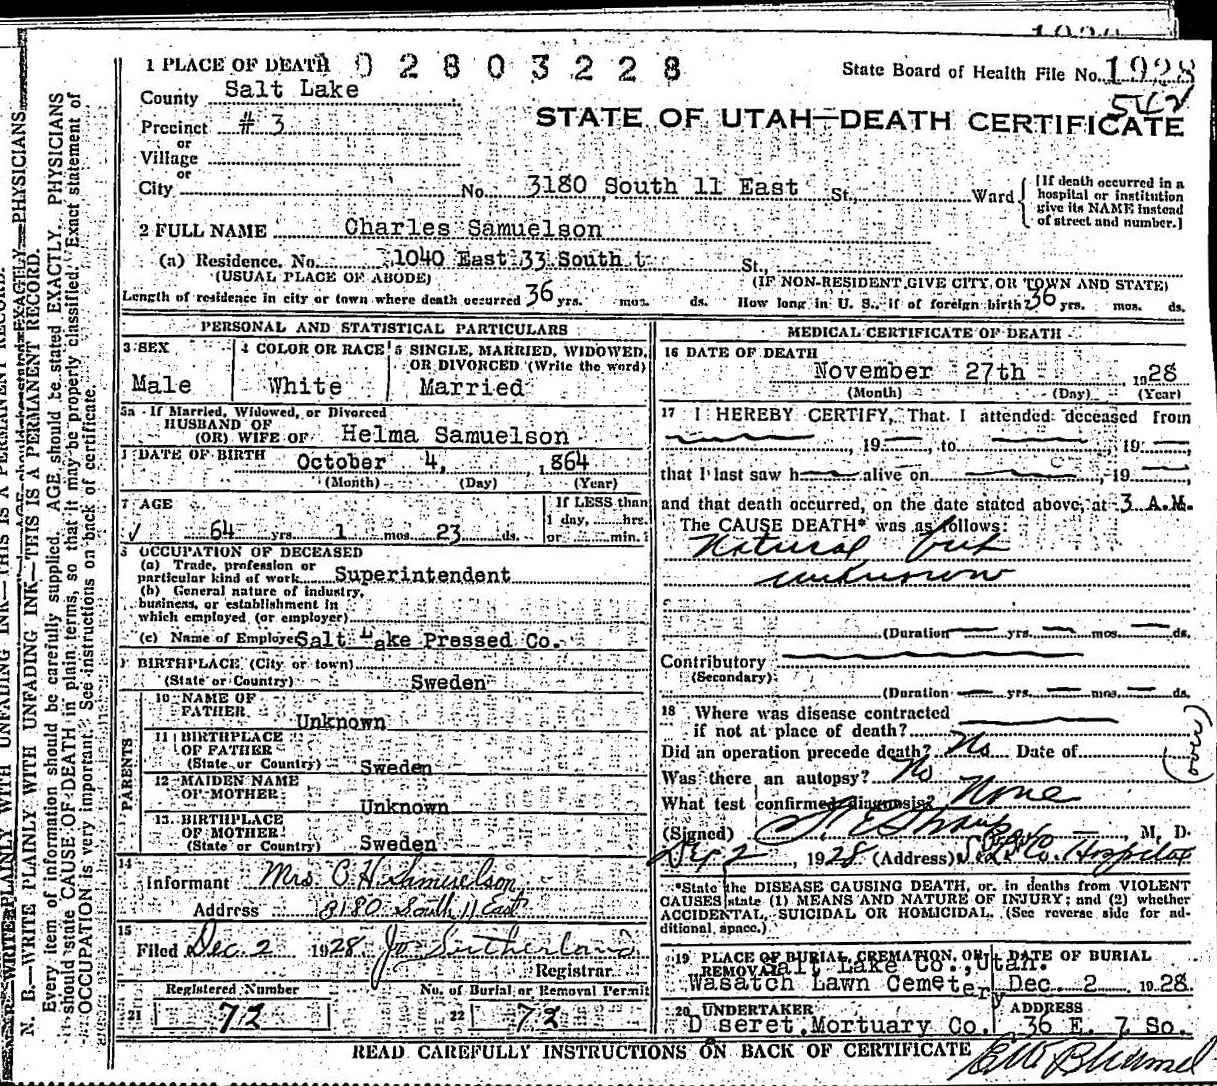 1 PLACE OF DEATH 02803228
State Board of Health File No. 1928
542
County Salt Lake
STATE OF UTAH—DEATH CERTIFICATE
Precinct # 3
or
Village
or
City No. 3180 South 11 East St., Ward
[If death occurred in a
hospital or institution
give its NAME instead
of street and number.]
2 FULL NAME Charles Samuelson
(a) Residence. No. 1040 East 33 South t St.,
(USUAL PLACE OF ABODE) (IF NON-RESIDENT GIVE CITY OR TOWN AND STATE)
Length of residence in city or town where death occurred 36 yrs. mos. ds. How long in U. S., if of foreign birth? 36 yrs. mos. ds.
PERSONAL AND STATISTICAL PARTICULARS
3 SEX
Male
4 COLOR OR RACE
White
5 SINGLE, MARRIED, WIDOWED,
OR DIVORCED (Write the word)
Married
5a If Married, Widowed, or Divorced
HUSBAND OF
(OR) WIFE OF Helma Samuelson
DATE OF BIRTH October 4, 1864
(Month) (Day) (Year)
7 AGE
64 yrs. 1 mos. 23 ds.
If LESS than
1 day, hrs.
or min.
8 OCCUPATION OF DECEASED
(a) Trade, profession or
particular kind of work Superintendent
(b) General nature of industry,
business, or establishment in
which employed (or employer)
(c) Name of Employer Salt Lake Pressed Co.
BIRTHPLACE (City or town)
(State or Country) Sweden
PARENTS
10 NAME OF
FATHER Unknown
11 BIRTHPLACE
OF FATHER
(State or Country) Sweden
12 MAIDEN NAME
OF MOTHER Unknown
13 BIRTHPLACE
OF MOTHER
(State or Country) Sweden
14
Informant Mrs. C. H. Samuelson
Address 3180 South 11 East
15
Filed Dec. 2 1928 Sutherland
Registrar.
Registered Number No. of Burial or Removal Permit
21 72 22 72
MEDICAL CERTIFICATE OF DEATH
16 DATE OF DEATH
November 27th 1928
(Month) (Day) (Year)
17 I HEREBY CERTIFY, That I attended deceased from
, 19 , to , 19 ,
that I last saw h alive on , 19 ,
and that death occurred, on the date stated above, at 3 A.M.
The CAUSE DEATH* was as follows:
Natural but
unknown
(Duration yrs. mos. ds.
Contributory
(Secondary)
(Duration yrs. mos. ds.
18 Where was disease contracted
if not at place of death?
Did an operation precede death? No Date of
(over)
Was there an autopsy? No
What test confirmed diagnosis? None
(Signed) , M. D.
2, 1928 (Address) S. L. Co. Hospital
*State the DISEASE CAUSING DEATH, or in deaths from VIOLENT
CAUSES state (1) MEANS AND NATURE OF INJURY; and (2) whether
ACCIDENTAL, SUICIDAL OR HOMICIDAL. (See reverse side for ad-
ditional space.)
19 PLACE OF BURIAL, CREMATION, OR
REMOVAL Salt Lake Co., Utah.
Wasatch Lawn Cemetery
DATE OF BURIAL
Dec. 2 1928
20 UNDERTAKER
D seret Mortuary Co.
ADDRESS
36 E. 7 So.
READ CAREFULLY INSTRUCTIONS ON BACK OF CERTIFICATE
N. B.—WRITE PLAINLY WITH UNFADING INK—THIS IS A PERMANENT RECORD.
Every item of information should be carefully supplied. AGE should be stated EXACTLY. PHYSICIANS
should state CAUSE OF DEATH in plain terms, so that it may be properly classified. Exact statement of
OCCUPATION is very important. See instructions on back of certificate.